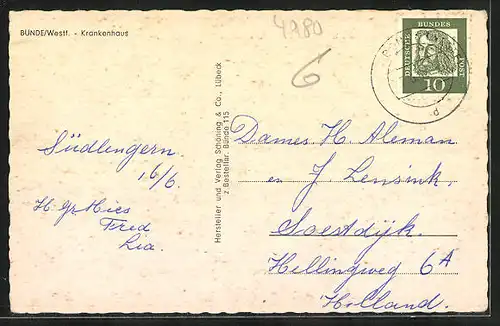 BÜNDE/Westf. - Krankenhaus
4980
6
DEUTSCHE BUNDES POST
10
d
Hersteller und Verlag Schöning & Co., Lübeck
z Bestellnr. Bünde 115
Südlengern
16/6.
Fred
Lia.
Dames H. Aleman
en J. Lensink.
Soestdijk.
Hellingweg 6A
Holland.